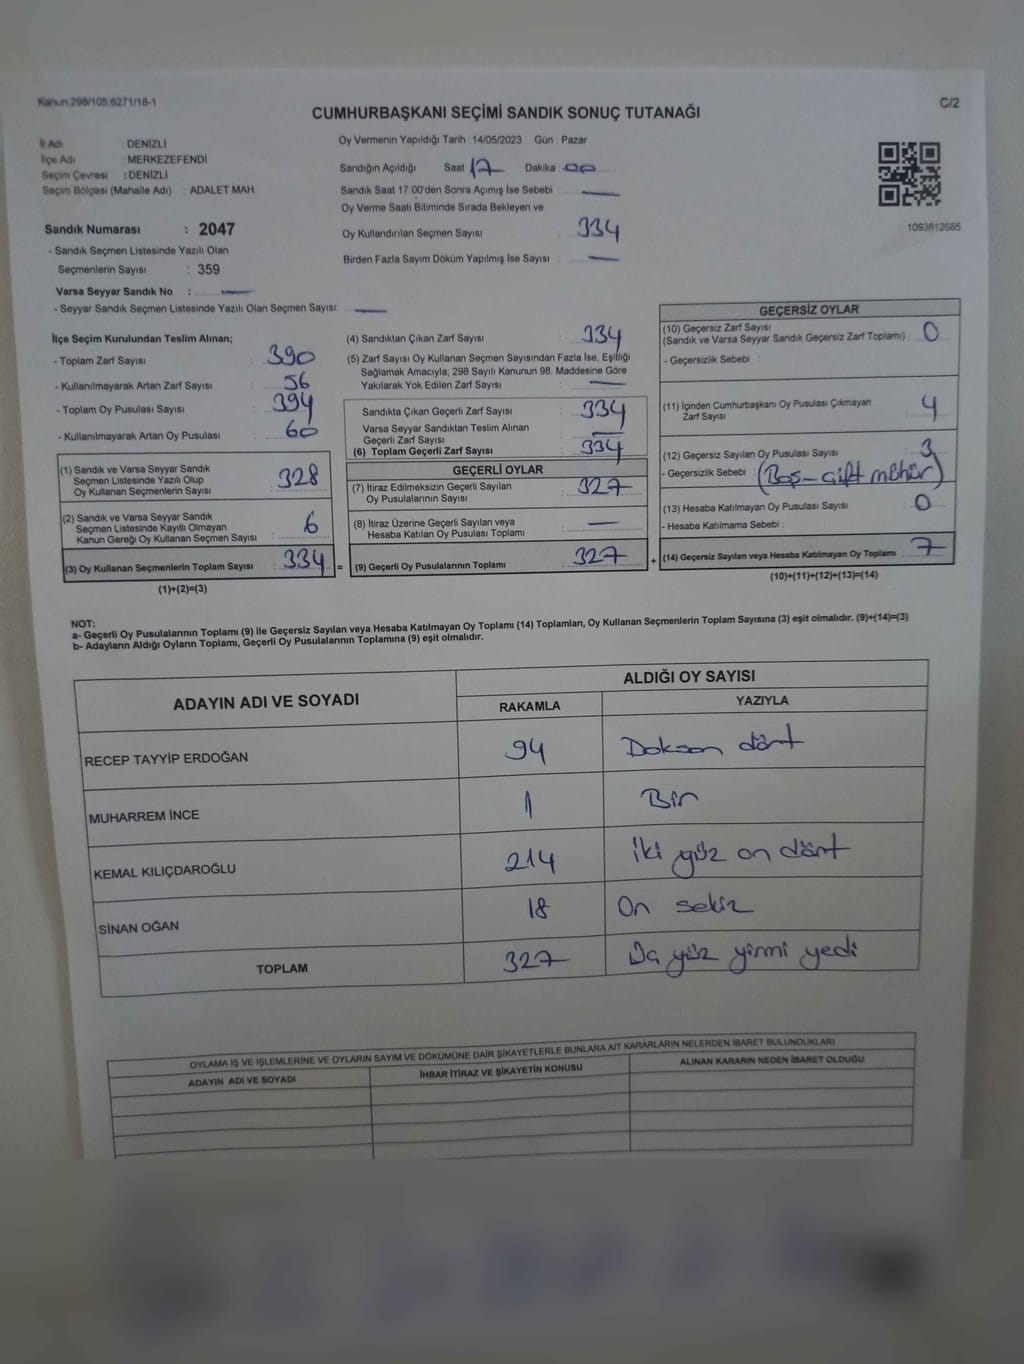 Kanun:298/105,6271/18-1
C/2
CUMHURBAŞKANI SEÇİMİ SANDIK SONUÇ TUTANAĞI
İl Adı : DENİZLİ
İlçe Adı : MERKEZEFENDİ
Seçim Çevresi : DENİZLİ
Seçim Bölgesi (Mahalle Adı) : ADALET MAH
Sandık Numarası : 2047
- Sandık Seçmen Listesinde Yazılı Olan
Seçmenlerin Sayısı : 359
Varsa Seyyar Sandık No : —
- Seyyar Sandık Seçmen Listesinde Yazılı Olan Seçmen Sayısı: —
Oy Vermenin Yapıldığı Tarih : 14/05/2023 Gün : Pazar
Sandığın Açıldığı Saat 17 Dakika 00
Sandık Saat 17.00'den Sonra Açımış İse Sebebi : —
Oy Verme Saati Bitiminde Sırada Bekleyen ve
Oy Kullandırılan Seçmen Sayısı : 334
Birden Fazla Sayım Döküm Yapılmış İse Sayısı : —
1093812685
İlçe Seçim Kurulundan Teslim Alınan;
- Toplam Zarf Sayısı : 390
- Kullanılmayarak Artan Zarf Sayısı : 56
- Toplam Oy Pusulası Sayısı : 394
- Kullanılmayarak Artan Oy Pusulası : 60
(1) Sandık ve Varsa Seyyar Sandık
Seçmen Listesinde Yazılı Olup
Oy Kullanan Seçmenlerin Sayısı : 328
(2) Sandık ve Varsa Seyyar Sandık
Seçmen Listesinde Kayıtlı Olmayan
Kanun Gereği Oy Kullanan Seçmen Sayısı : 6
(3) Oy Kullanan Seçmenlerin Toplam Sayısı : 334 =
(1)+(2)=(3)
(4) Sandıktan Çıkan Zarf Sayısı : 334
(5) Zarf Sayısı Oy Kullanan Seçmen Sayısından Fazla İse, Eşitliği
Sağlamak Amacıyla; 298 Sayılı Kanunun 98. Maddesine Göre
Yakılarak Yok Edilen Zarf Sayısı : —
Sandıkta Çıkan Geçerli Zarf Sayısı : 334
Varsa Seyyar Sandıktan Teslim Alınan
Geçerli Zarf Sayısı : —
(6) Toplam Geçerli Zarf Sayısı : 334
GEÇERLİ OYLAR
(7) İtiraz Edilmeksizin Geçerli Sayılan
Oy Pusulalarının Sayısı : 327
(8) İtiraz Üzerine Geçerli Sayılan veya
Hesaba Katılan Oy Pusulası Toplamı : —
(9) Geçerli Oy Pusulalarının Toplamı : 327 +
GEÇERSİZ OYLAR
(10) Geçersiz Zarf Sayısı
(Sandık ve Varsa Seyyar Sandık Geçersiz Zarf Toplamı) : 0
- Geçersizlik Sebebi :
(11) İçinden Cumhurbaşkanı Oy Pusulası Çıkmayan
Zarf Sayısı : 4
(12) Geçersiz Sayılan Oy Pusulası Sayısı : 3
- Geçersizlik Sebebi : (Boş-çift mühür)
(13) Hesaba Katılmayan Oy Pusulası Sayısı : 0
- Hesaba Katılmama Sebebi :
(14) Geçersiz Sayılan veya Hesaba Katılmayan Oy Toplamı : 7
(10)+(11)+(12)+(13)=(14)
NOT:
a- Geçerli Oy Pusulalarının Toplamı (9) ile Geçersiz Sayılan veya Hesaba Katılmayan Oy Toplamı (14) Toplamları, Oy Kullanan Seçmenlerin Toplam Sayısına (3) eşit olmalıdır. (9)+(14)=(3)
b- Adayların Aldığı Oyların Toplamı, Geçerli Oy Pusulalarının Toplamına (9) eşit olmalıdır.
ADAYIN ADI VE SOYADI
ALDIĞI OY SAYISI
RAKAMLA YAZIYLA
RECEP TAYYİP ERDOĞAN 94 Doksan dört
MUHARREM İNCE 1 Bir
KEMAL KILIÇDAROĞLU 214 İki yüz on dört
SİNAN OĞAN 18 On sekiz
TOPLAM 327 Üç yüz yirmi yedi
OYLAMA İŞ VE İŞLEMLERİNE VE OYLARIN SAYIM VE DÖKÜMÜNE DAİR ŞİKAYETLERLE BUNLARA AİT KARARLARIN NELERDEN İBARET BULUNDUKLARI
ADAYIN ADI VE SOYADI İHBAR İTİRAZ VE ŞİKAYETİN KONUSU ALINAN KARARIN NEDEN İBARET OLDUĞU